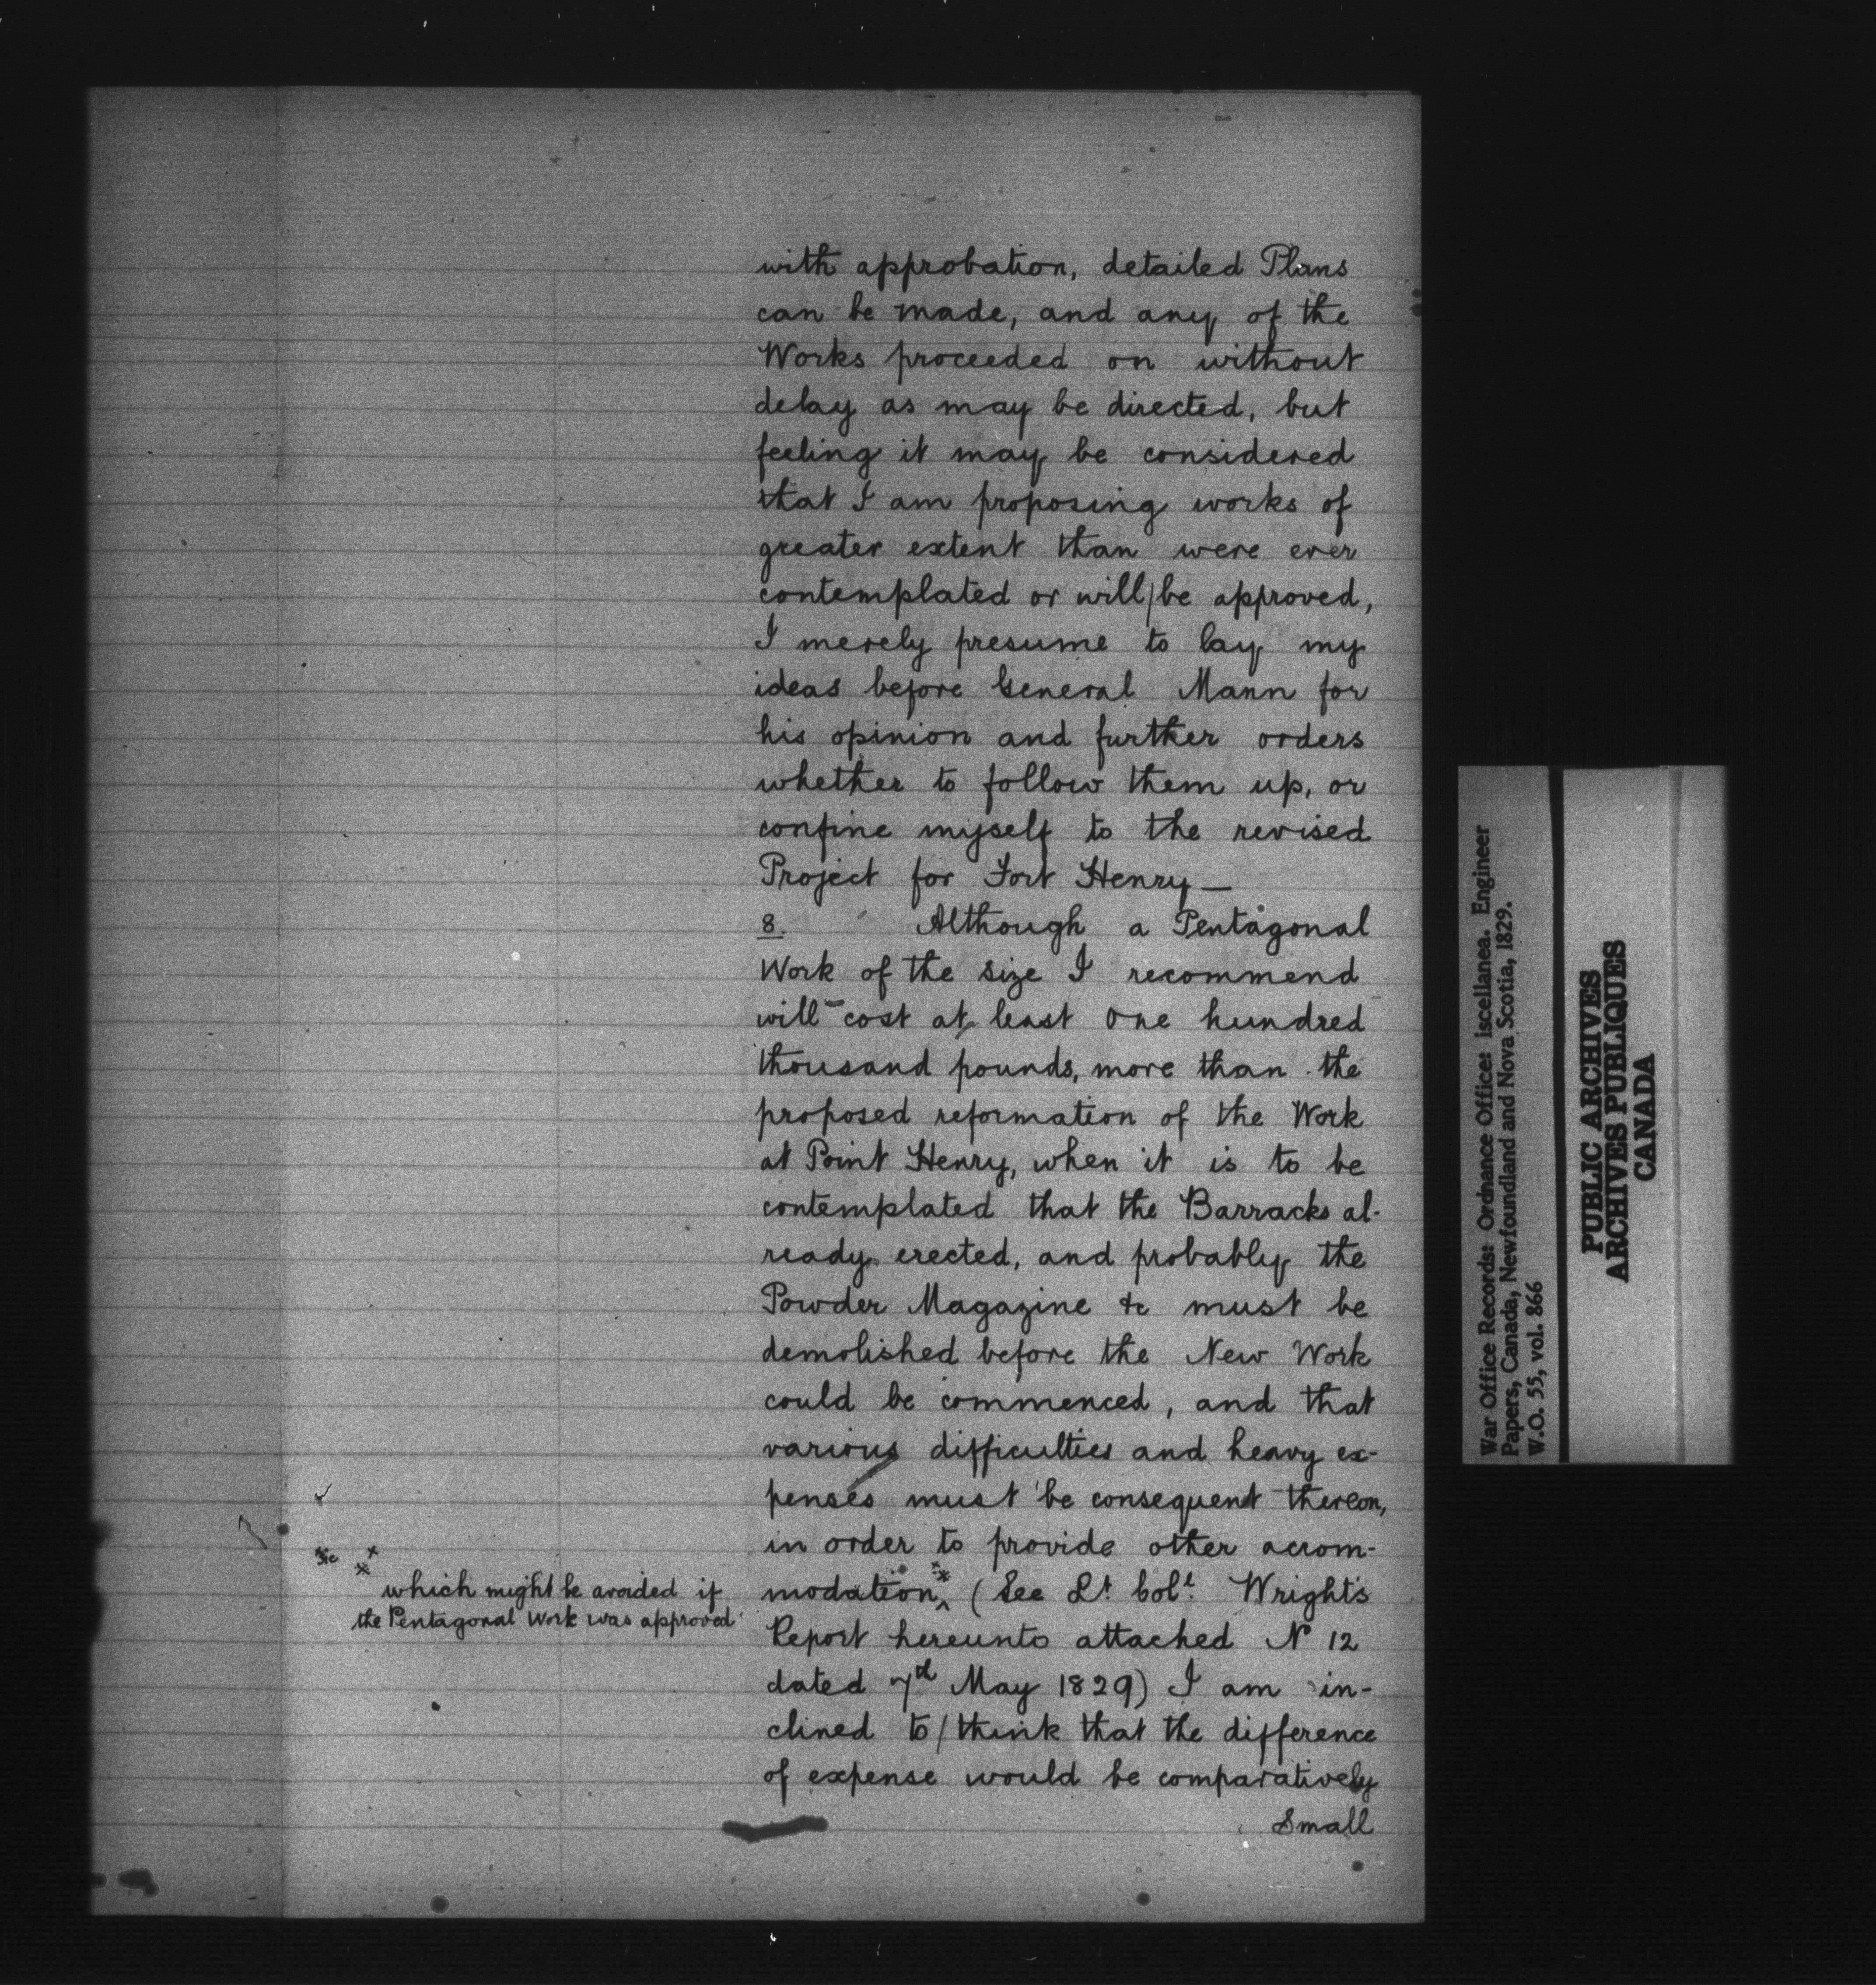 with approbation, detailed Plans
can be made, and any of the
Works proceeded on without
delay as may be directed, but
feeling it may be considered
that I am proposing works of
greater extent than were ever
contemplated or will/be approved,
I merely presume to lay my
ideas before General Mann for
his opinion and further orders
whether to follow them up, or
confine myself to the revised
Project for Fort Henry —
8. Although a Pentagonal
Work of the size I recommend
will cost at least one hundred
thousand pounds, more than the
proposed reformation of the Work
at Point Henry, when it is to be
contemplated that the Barracks al-
ready erected, and probably the
Powder Magazine &c must be
demolished before the New Work
could be commenced, and that
various difficulties and heavy ex-
penses must be consequent thereon,
in order to provide other accom-
modation, (See Lt. Col. Wright's
Report hereunto attached No 12
dated 7th May 1829) I am in-
clined to/think that the difference
of expense would be comparatively
Small
Sic
which might be avoided if
the Pentagonal Work was approved
War Office Records: Ordnance Office: iscellanea. Engineer
Papers, Canada, Newfoundland and Nova Scotia, 1829.
W.O. 55, vol. 866
PUBLIC ARCHIVES
ARCHIVES PUBLIQUES
CANADA